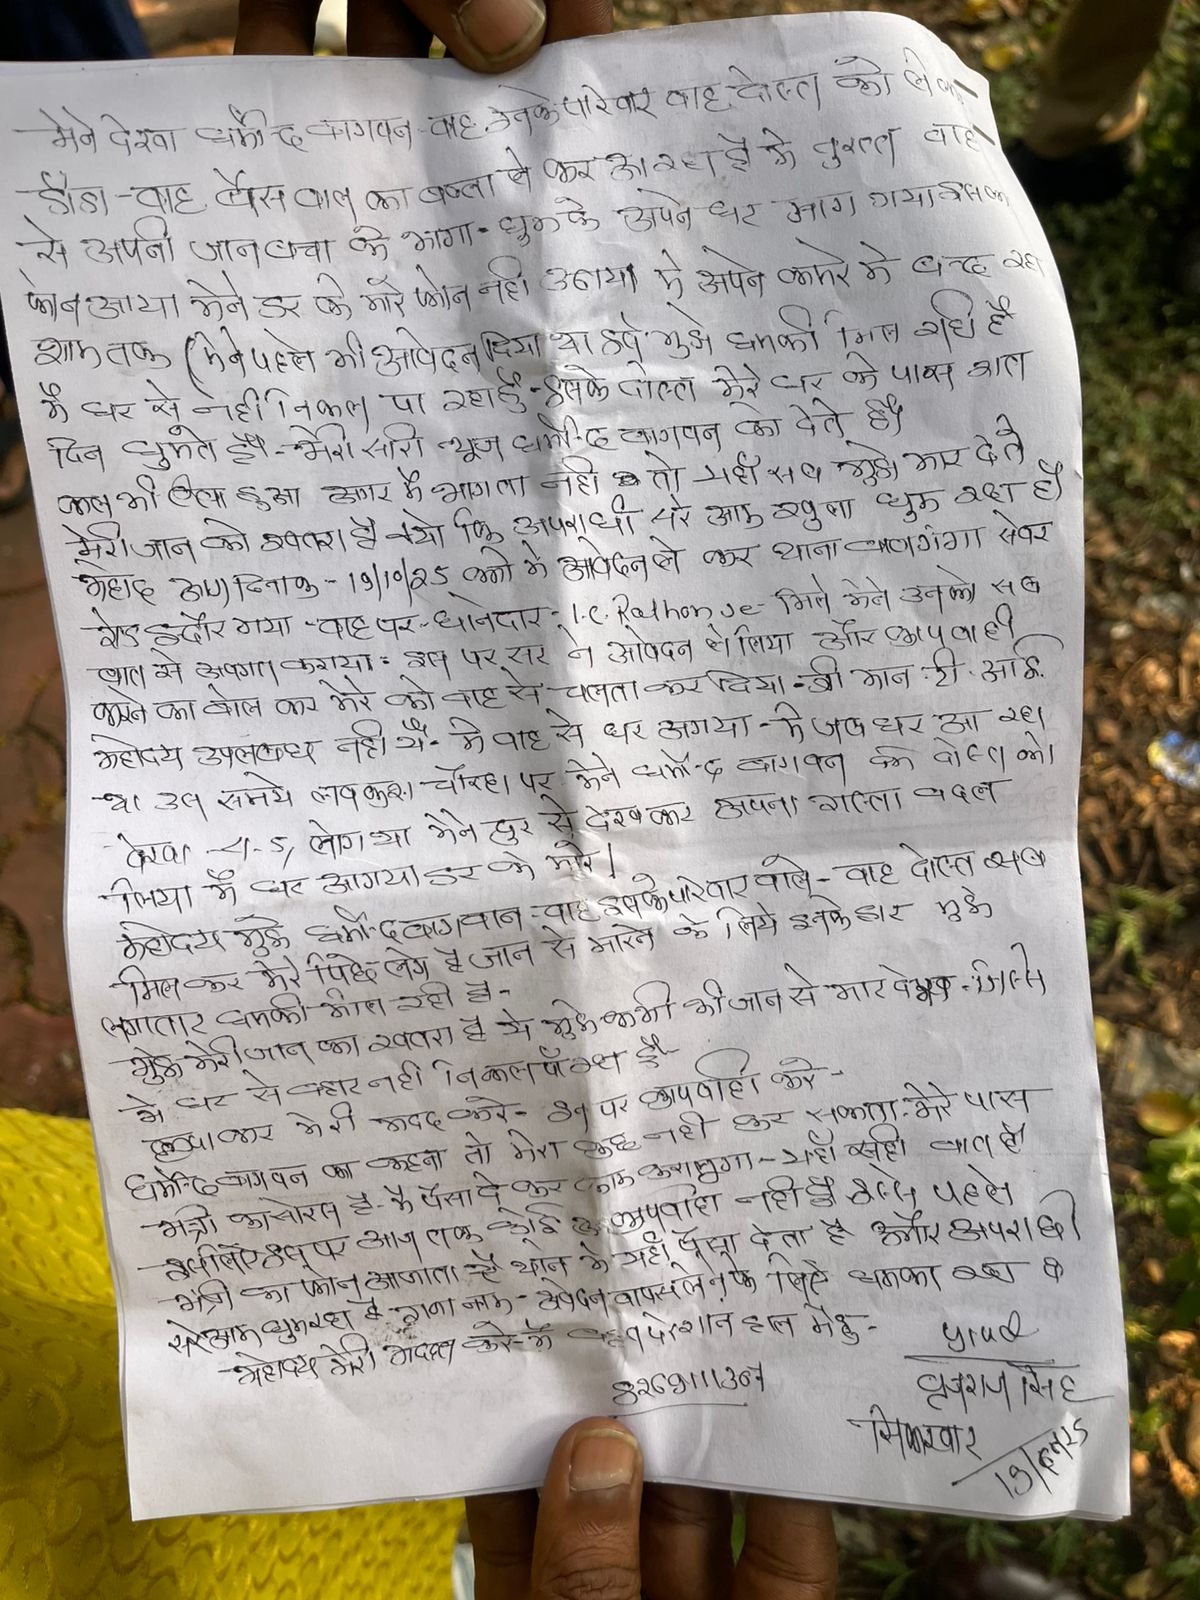 मेने देखा धर्मेन्द बागवन - वाह उनके पारेवार वाह दोस्त को लेकर
डंडा - वाह बैस वाल का बल्ला ले कर आ रहा है मे तुरन्त वाह
से अपनी जान बचा के भागा - घुमके अपने घर भाग गया इसका
फोन आया मेने डर के मारे फोन नही उठाया मे अपने कमरे मे बन्द रहा
शाम तक (मेने पहले भी आवेदन दिया था मुझे धमकी मिल रही है
मै घर से नही निकल पा रहा हुँ - इसके दोस्त मेरे घर के पास रात
दिन घुमते है - मेरी सारी न्यूज धर्मेन्द बागवन को देते है
कल भी ऐसा हुआ अगर मै भागता नही तो यही सब मुझे मार देते
मेरी जान को खतरा है क्यो कि अपराधी सरे आम खुला घुम रहा है
महोद दिनाक - 19/10/25 को मे आवेदन ले कर थाना बाणगंगा सेवर
रोड इन्दौर गया - वाह पर - थानेदार : मिले मेने उनको सब
बात से अवगत कराया : इस पर सर ने आवेदन ले लिया और कापवाही
करने का बोल कर मेरे को वाह से चलता कर दिया - श्री मान टी. आई.
महोदय उपलब्ध नही थे - मे वाह से घर आगया - मे जब घर आ रहा
था उस समये लवकुश चौरहा पर मेने धर्मेन्द बागवन के दोस्त को
देखा - 4-5, लोग था मेने दुर से देखकर अपना रास्ता बदल
लिया मै घर आगया डर के मारे।
महोदय मुझे धर्मेन्द बागवान - वाह इसके पारेवार वाले - वाह दोस्त सब
मिल कर मेरे पिछे लगे है जान से मारने के लिये इनके द्वार मुझे
लगातार धमकी मील रही है -
मुझे मेरी जान का खतरा है ये मुझे कभी भी जान से मार देगे - जिससे
मे घर से बहार नही निकल पा रहा हुँ -
कृपा कर मेरी मदद करे - इन पर कापवाही करे -
धर्मेन्द बागवन का कहना तो मेरा कुछ नही कर सकता - मेरे पास
मंत्री का सोरस है - मै पैसा दे कर काम करालुगा - यही सही बात है
इसलिए इस पर आज तक कोई कापवाही नही हुई इससे पहले
मंत्री का फोन आजाता है थाने मे यही पैसा देता है और अपराधी
सरेआम घुम रहा है - आवेदन वापस लेने के लिऐ धमका रहा है
महोदय मेरी मदद करे - मै बहुत परेशान हाल मे हु -
8269111307
प्रार्थी
बृजराज सिंह
सिकरवार